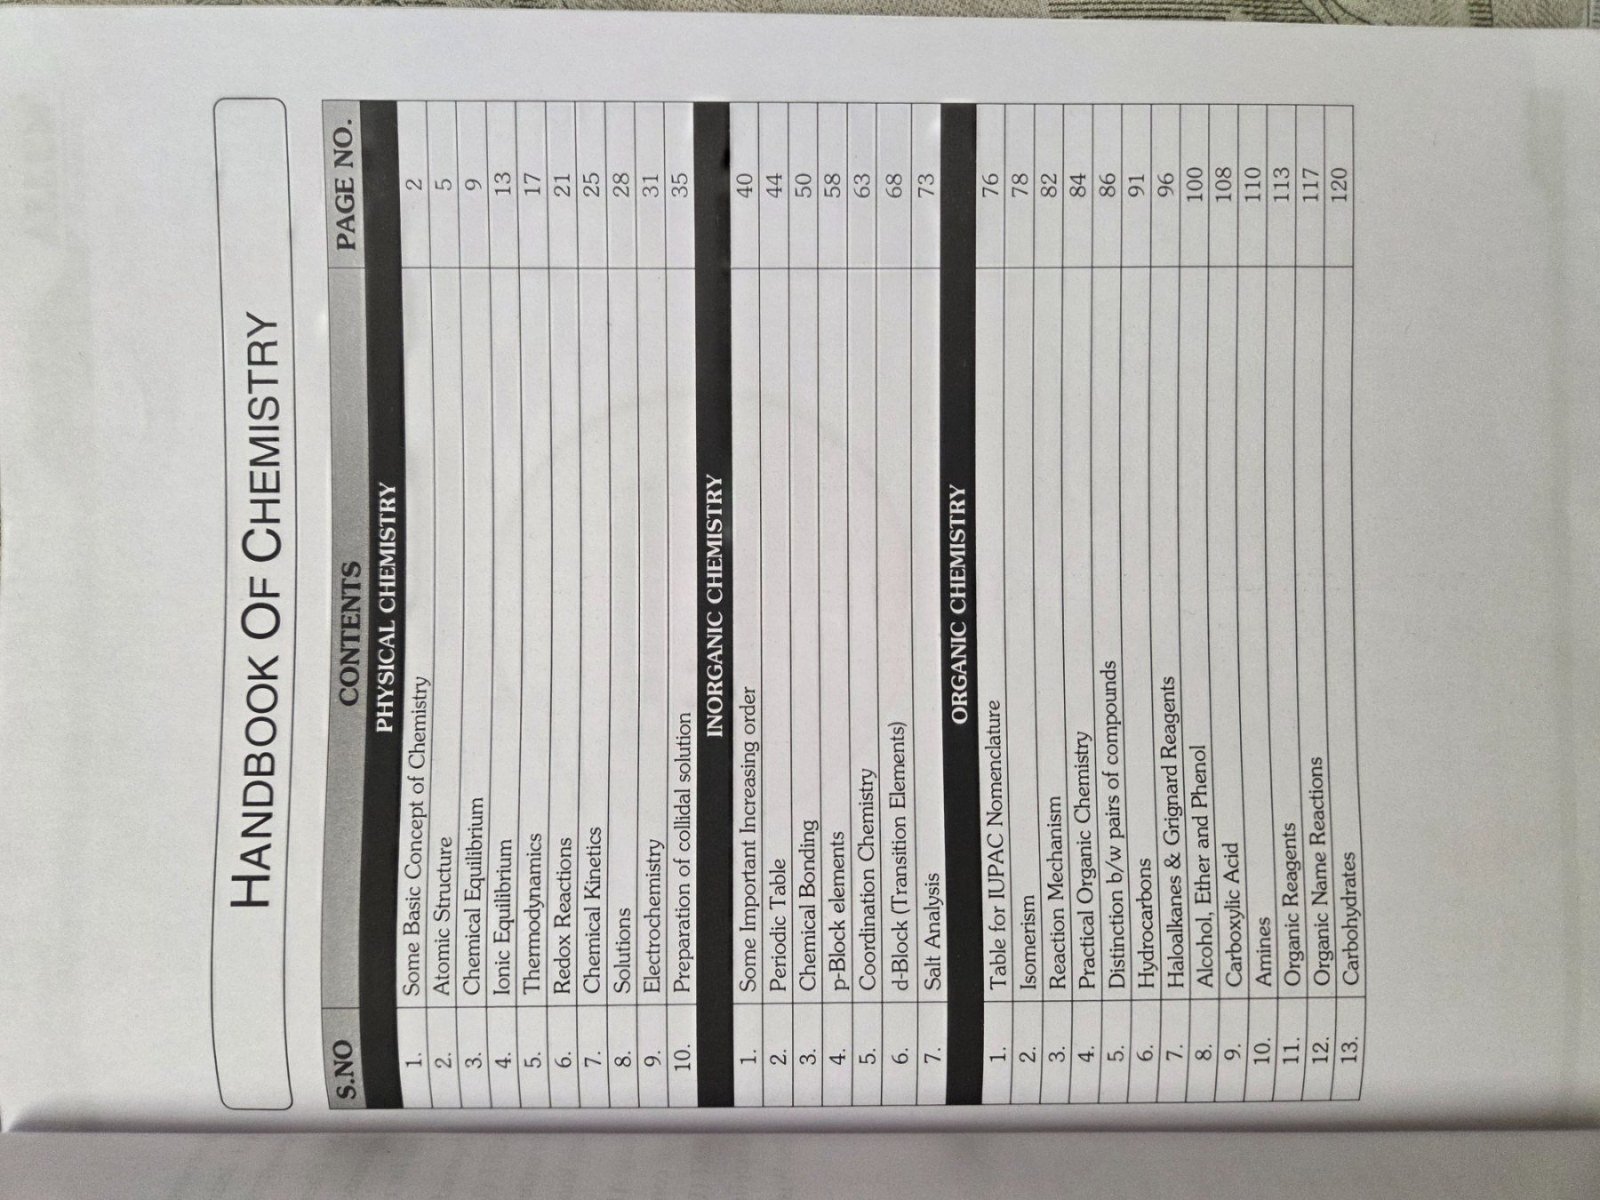 HANDBOOK OF CHEMISTRY
S.NO CONTENTS PAGE NO.
PHYSICAL CHEMISTRY
1. Some Basic Concept of Chemistry 2
2. Atomic Structure 5
3. Chemical Equilibrium 9
4. Ionic Equilibrium 13
5. Thermodynamics 17
6. Redox Reactions 21
7. Chemical Kinetics 25
8. Solutions 28
9. Electrochemistry 31
10. Preparation of collidal solution 35
INORGANIC CHEMISTRY
1. Some Important Increasing order 40
2. Periodic Table 44
3. Chemical Bonding 50
4. p-Block elements 58
5. Coordination Chemistry 63
6. d-Block (Transition Elements) 68
7. Salt Analysis 73
ORGANIC CHEMISTRY
1. Table for IUPAC Nomenclature 76
2. Isomerism 78
3. Reaction Mechanism 82
4. Practical Organic Chemistry 84
5. Distinction b/w pairs of compounds 86
6. Hydrocarbons 91
7. Haloalkanes & Grignard Reagents 96
8. Alcohol, Ether and Phenol 100
9. Carboxylic Acid 108
10. Amines 110
11. Organic Reagents 113
12. Organic Name Reactions 117
13. Carbohydrates 120